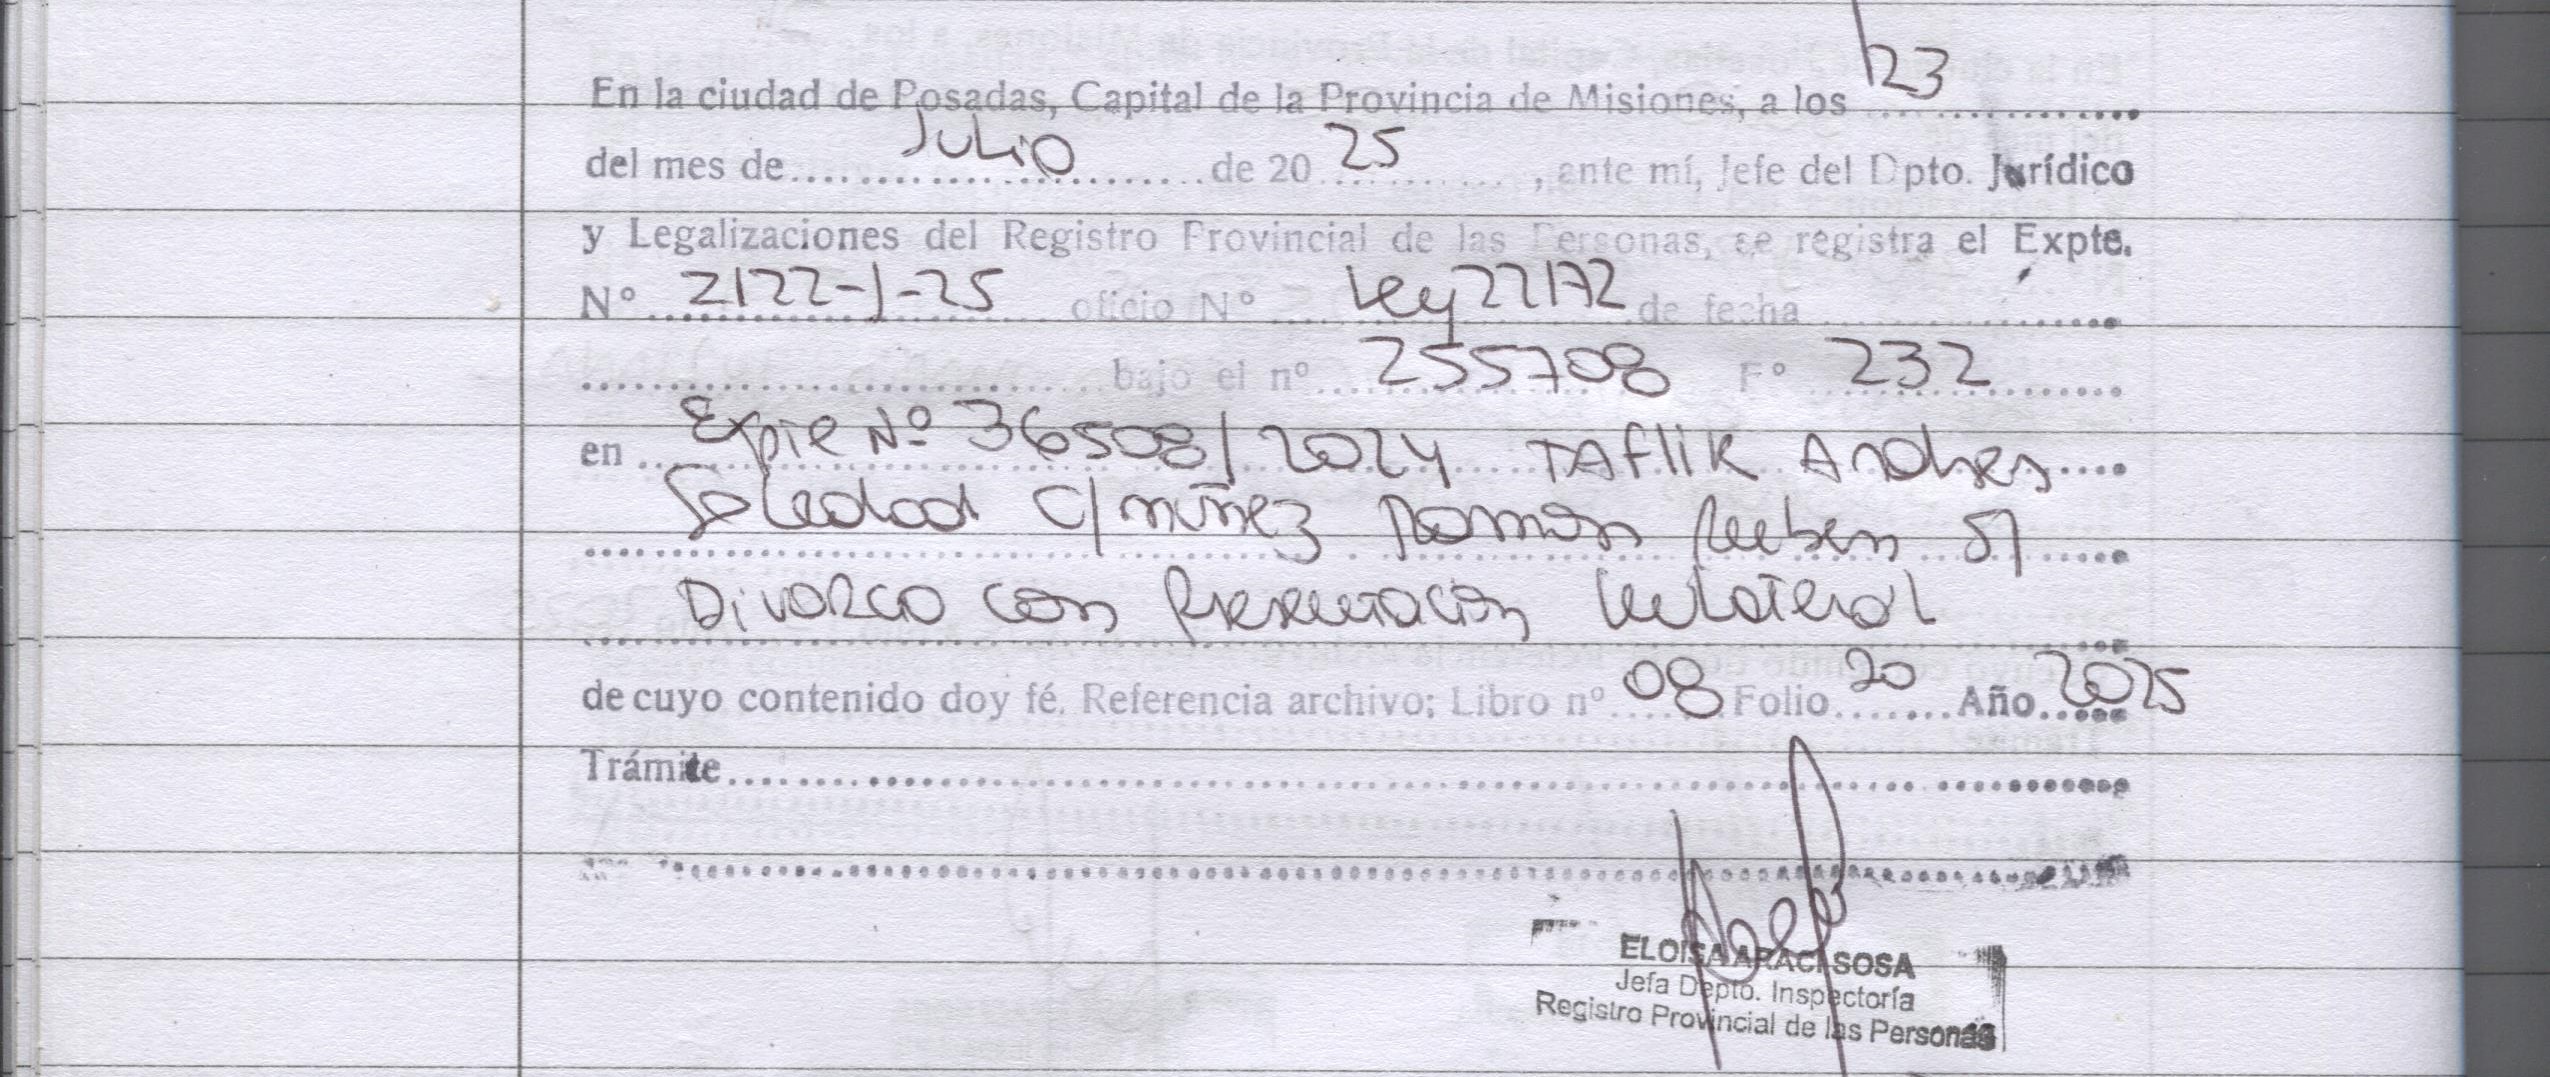 En la ciudad de Posadas, Capital de la Provincia de Misiones, a los 23
del mes de Julio de 20 25, ante mí, Jefe del Dpto. Jurídico
y Legalizaciones del Registro Provincial de las Personas, se registra el Expte.
Nº 2122-J-25 oficio Nº Ley 22172 de fecha
bajo el nº 255708 Fº 232
en Expte Nº 36508/2024 TAflIK Andrea
Soledad C/ núñez Ramon Ruben S/
Divorcio con Presentación Unilateral
de cuyo contenido doy fé. Referencia archivo; Libro nº 08 Folio 20 Año 2025
Trámite
ELOISA ARACI SOSA
Jefa Depto. Inspectoría
Registro Provincial de las Personas